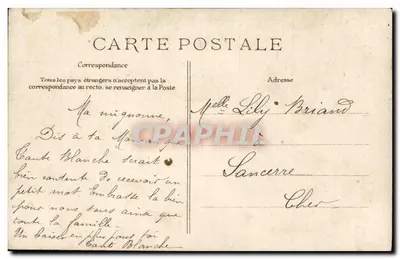 CARTE POSTALE
Correspondance
Tous les pays étrangers n'acceptent pas la
correspondance au recto. se renseigner à la Poste
Adresse
Ma mignonne,
Dis à ta Maman que
Tante Blanche serait
bien contente de recevoir un
petit mot. Embrasse la bien
pour nous sans ainsi que
toute la famille.
Un baiser en plus pour toi
Tante Blanche
Melle Lily Briand
à
Sancerre
Cher
CPAPHIL